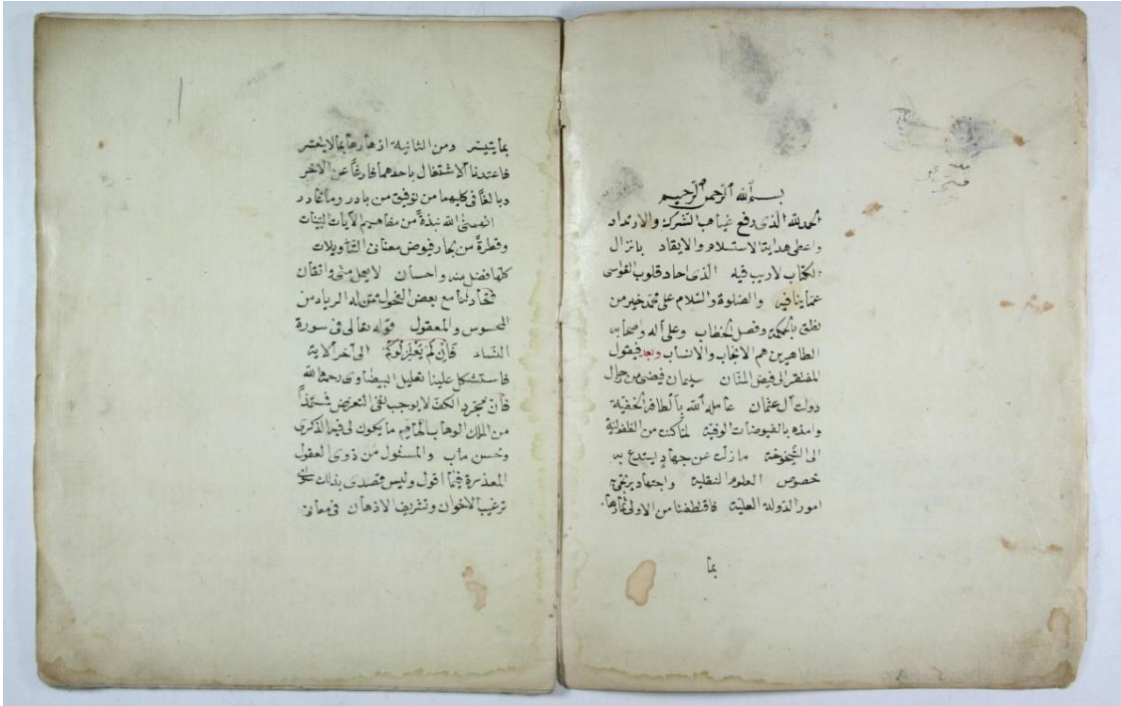 بسم الله الرحمن الرحيم
الحمد لله الذى رفع غياهب الشرك والارتداد
واعطى هداية الاستسلام والايقاد بانزال
الكتاب لاريب فيه الذى احاد قلوب القواسى
عما ينافيه والصلوة والسلام على محمد خير من
نطق بالحكمة وفصل الخطاب وعلى آله واصحابه
الطاهرين هم الانجاب والانساب وبعد فيقول
المفتقر الى فيض المنان سليمان فيضى من رجال
دولت آل عثمان عامله الله بالطافه الخفية
وامده بالفيوضات الوفية لما كنت من الطفولية
الى الشيخوخة مازلت عن جهاد يبتدع به
خصوص العلوم النقلية واجتهاد يرتقى
امور الدولة العلية فاقتطفنا من الاولى ثمارها
بما
بما يتيسر ومن الثانية ازهارها بما لايتعسر
فاعتدنا الاشتغال باحدهما فارغاً عن الآخر
وبالغاً فى كليهما من توفيق من بادر وماغادر
الهمنى الله نبذة من مفاهيم الآيات البينات
وقطرة من بحار فيوض معانى التأويلات
كلها فضل منه واحسان لا بعمل منى واتقان
مع بعض الفحول ممن له الرياد من
المحسوس والمعقول قوله تعالى فى سورة
النساء فان لم يعتزلوكم الى آخر الآية
فاستشكل علينا تعليل البيضاوى رحمه الله
فان مجرد الكف لايوجب نفى التعرض
من الملك الوهاب الهاهم ما يكون لى فيه الذكرى
وحسن مآب والمسئول من ذوى العقول
المعذرة فيما اقول وليس مقصدى بذلك سوى
ترغيب الاخوان وتشريف الاذهان فى معانى